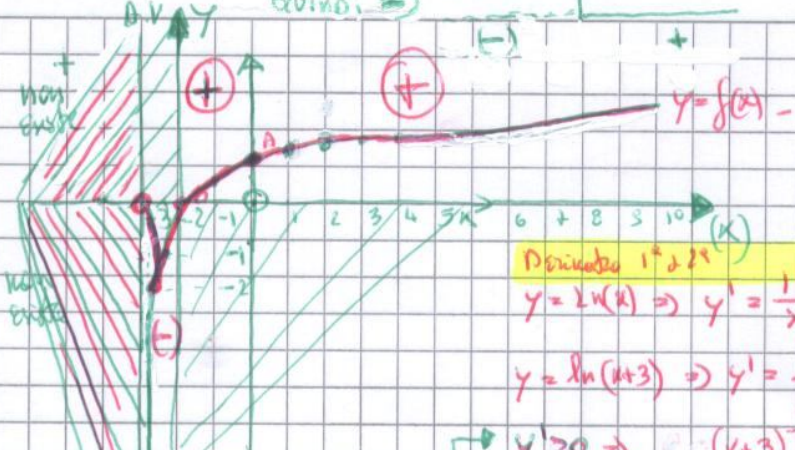 Quindi
D. V. Y
+ (-) +
non
esiste
+ +
y = f(x) -
A
-3 -2 -1 0 1 2 3 4 5 6 7 8 9 10 (x)
-1
-2
non
esiste
(-)
Derivata 1ª e 2ª
y = ln(x) => y' = 1
y = ln(x+3) => y' =
y' > 0 => (x+3)